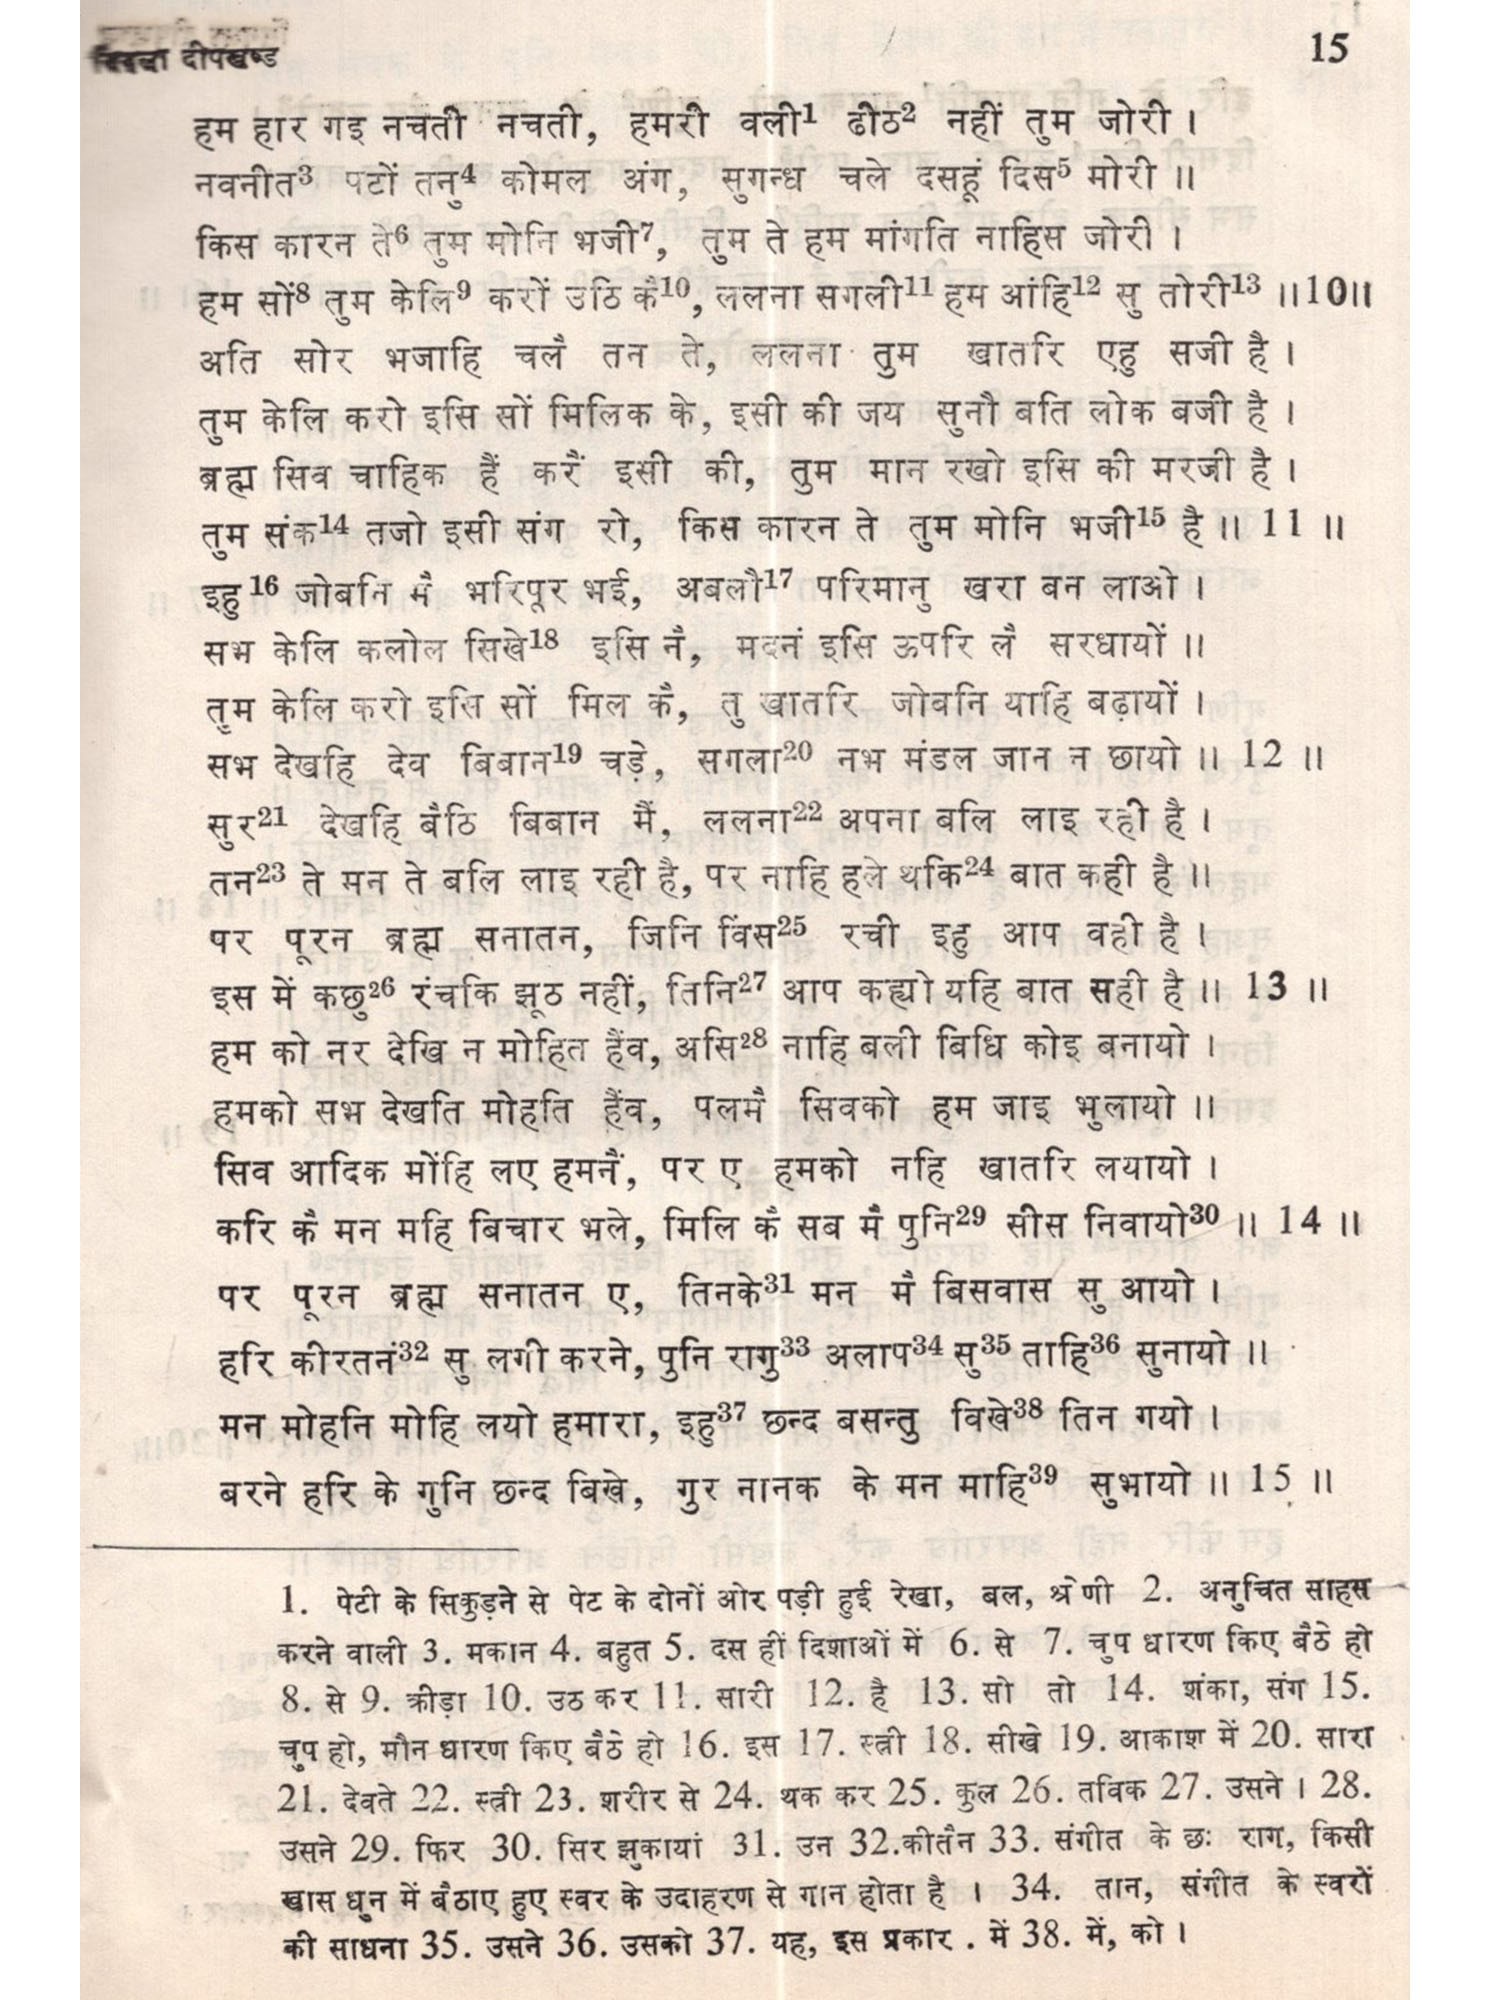 दीपखण्ड
15
हम हार गइ नचती नचती, हमरी वली1 ढीठ2 नहीं तुम जोरी ।
नवनीत3 पटों तनु4 कोमल अंग, सुगन्ध चले दसहूं दिस5 मोरी ॥
किस कारन ते6 तुम मोनि भजी7, तुम ते हम मांगति नाहिस जोरी ।
हम सों8 तुम केलि9 करों उठि कै10, ललना सगली11 हम आंहि12 सु तोरी13 ॥10॥
अति सोर भजाहि चलै तन ते, ललना तुम खातरि एहु सजी है ।
तुम केलि करो इसि सों मिलिक के, इसी की जय सुनौ बति लोक बजी है ।
ब्रह्म सिव चाहिक हैं करैं इसी की, तुम मान रखो इसि की मरजी है ।
तुम संक14 तजो इसी संग रो, किस कारन ते तुम मोनि भजी15 है ॥ 11 ॥
इहु16 जोबनि मै भरिपूर भई, अबलौ17 परिमानु खरा बन लाओ ।
सभ केलि कलोल सिखे18 इसि नै, मदनं इसि ऊपरि लै सरधायों ॥
तुम केलि करो इसि सों मिल कै, तु खातरि जोबनि याहि बढ़ायों ।
सभ देखहि देव बिबान19 चड़े, सगला20 नभ मंडल जान न छायो ॥ 12 ॥
सुर21 देखहि बैठि बिबान मैं, ललना22 अपना बलि लाइ रही है ।
तन23 ते मन ते बलि लाइ रही है, पर नाहि हले थकि24 बात कही है ॥
पर पूरन ब्रह्म सनातन, जिनि विंस25 रची इहु आप वही है ।
इस में कछु26 रंचकि झूठ नहीं, तिनि27 आप कह्यो यहि बात सही है ॥ 13 ॥
हम को नर देखि न मोहित हैंव, असि28 नाहि बली बिधि कोइ बनायो ।
हमको सभ देखति मोहति हैंव, पलमै सिवको हम जाइ भुलायो ॥
सिव आदिक मोंहि लए हमनैं, पर ए हमको नहि खातरि लयायो ।
करि कै मन महि बिचार भले, मिलि कै सब मै पुनि29 सीस निवायो30 ॥ 14 ॥
पर पूरन ब्रह्म सनातन ए, तिनके31 मन मै बिसवास सु आयो ।
हरि कीरतनं32 सु लगी करने, पुनि रागु33 अलाप34 सु35 ताहि36 सुनायो ॥
मन मोहनि मोहि लयो हमारा, इहु37 छन्द बसन्तु विखे38 तिन गयो ।
बरने हरि के गुनि छन्द बिखे, गुर नानक के मन माहि39 सुभायो ॥ 15 ॥
1. पेटी के सिकुड़ने से पेट के दोनों ओर पड़ी हुई रेखा, बल, श्रेणी 2. अनुचित साहस
करने वाली 3. मकान 4. बहुत 5. दस हीं दिशाओं में 6. से 7. चुप धारण किए बैठे हो
8. से 9. क्रीड़ा 10. उठ कर 11. सारी 12. है 13. सो तो 14. शंका, संग 15.
चुप हो, मौन धारण किए बैठे हो 16. इस 17. स्त्री 18. सीखे 19. आकाश में 20. सारा
21. देवते 22. स्त्री 23. शरीर से 24. थक कर 25. कुल 26. तविक 27. उसने । 28.
उसने 29. फिर 30. सिर झुकायां 31. उन 32.कीर्तन 33. संगीत के छः राग, किसी
खास धुन में बैठाए हुए स्वर के उदाहरण से गान होता है । 34. तान, संगीत के स्वरों
की साधना 35. उसने 36. उसको 37. यह, इस प्रकार . में 38. में, को ।